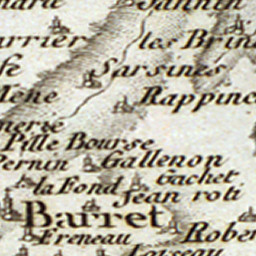 Jannin
arrier
les Brin
Sarsines
Mene
Rappinc
nerie
Pille Bourse
Pernin
Gallenon
Gachet
la Fond
Jean roti
Barret
Freneau
Rober
Loiseau